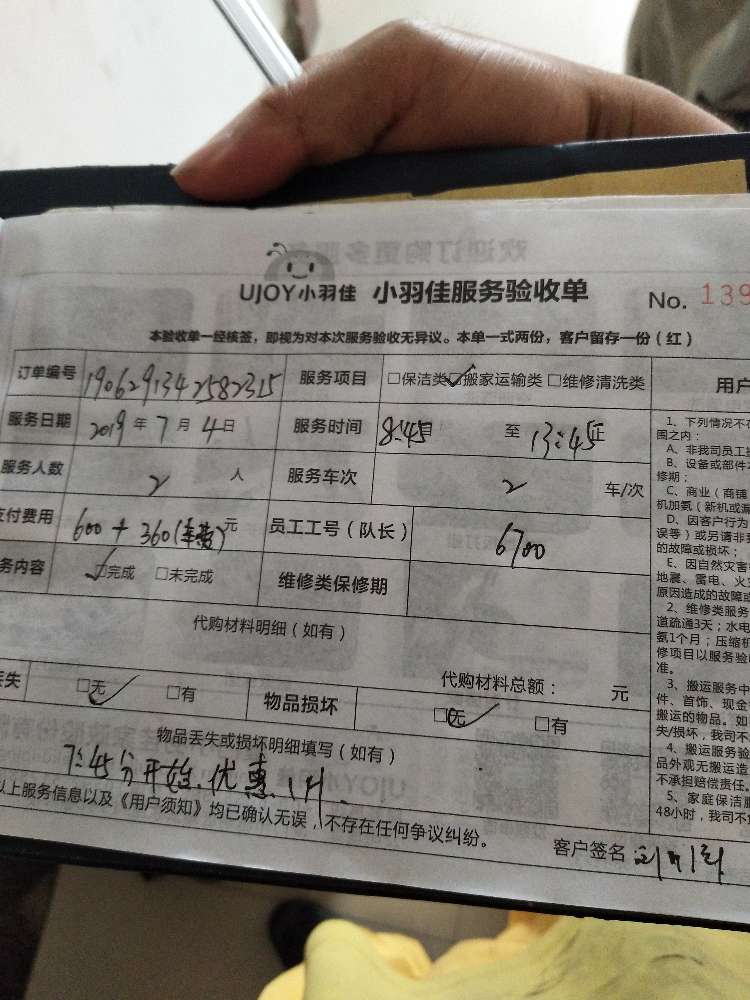 UJOY小羽佳 小羽佳服务验收单 No. 139
本验收单一经核签，即视为对本次服务验收无异议。本单一式两份，客户留存一份（红）
订单编号 1906291342582315 服务项目 □保洁类 ☑搬家运输类 □维修清洗类
服务日期 2019年7月4日 服务时间 8:45 至 13:45
服务人数 2 人 服务车次 2 车/次
支付费用 600+360(车费)元 员工工号（队长） 6700
务内容 ☑完成 □未完成 维修类保修期
代购材料明细（如有）
代购材料总额： 元
丢失 ☑无 □有 物品损坏 ☑无 □有
物品丢失或损坏明细填写（如有）
7:45分开始.优惠.1H.
以上服务信息以及《用户须知》均已确认无误，不存在任何争议纠纷。
客户签名：
用户
1、下列情况不在
围之内：
A、非我司员工
B、设备或部件
修期；
C、商业（商铺
机加氨（新机或漏
D、因客户行为
误等）或另请非
的故障或损坏；
E、因自然灾害
地震、雷电、火
原因造成的故障或
2、维修类服务
道疏通3天；水电
氨1个月；压缩机
修项目以服务验
准。
3、搬运服务中
件、首饰、现金
搬运的物品。如
失/损坏，我司不
4、搬运服务验
品外观无搬运造
不承担赔偿责任。
5、家庭保洁服
48小时，我司不